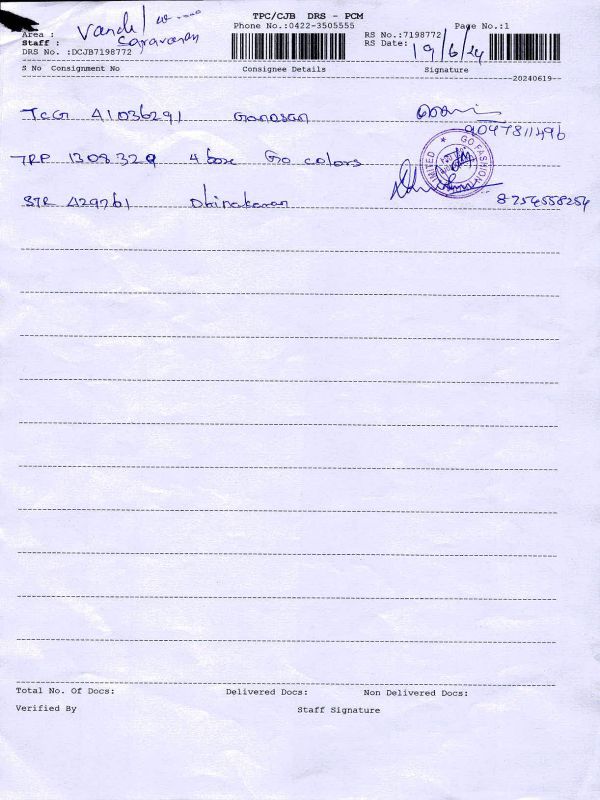 TPC/CJB DRS - PCM
Phone No.:0422-3505555 Page No.:1
Area : Vandi
Staff : Saravanan
DRS No. :DCJB7198772
RS No.:7198772
RS Date: 19/6/24
S No Consignment No Consignee Details Signature
20240619
TCG A1036291 Ganesan
9047811496
TRP 1308329 4 box Go colors
GO FASHION LIMITED
STR A29261 Dhinakaran 8754558254
Total No. Of Docs: Delivered Docs: Non Delivered Docs:
Verified By Staff Signature